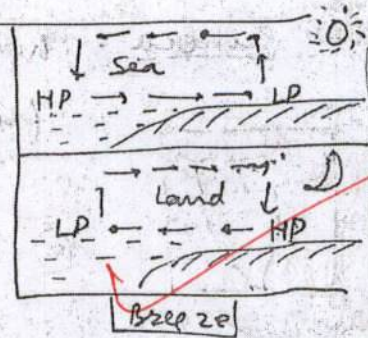 Sea
HP LP
Land
LP HP
Breeze